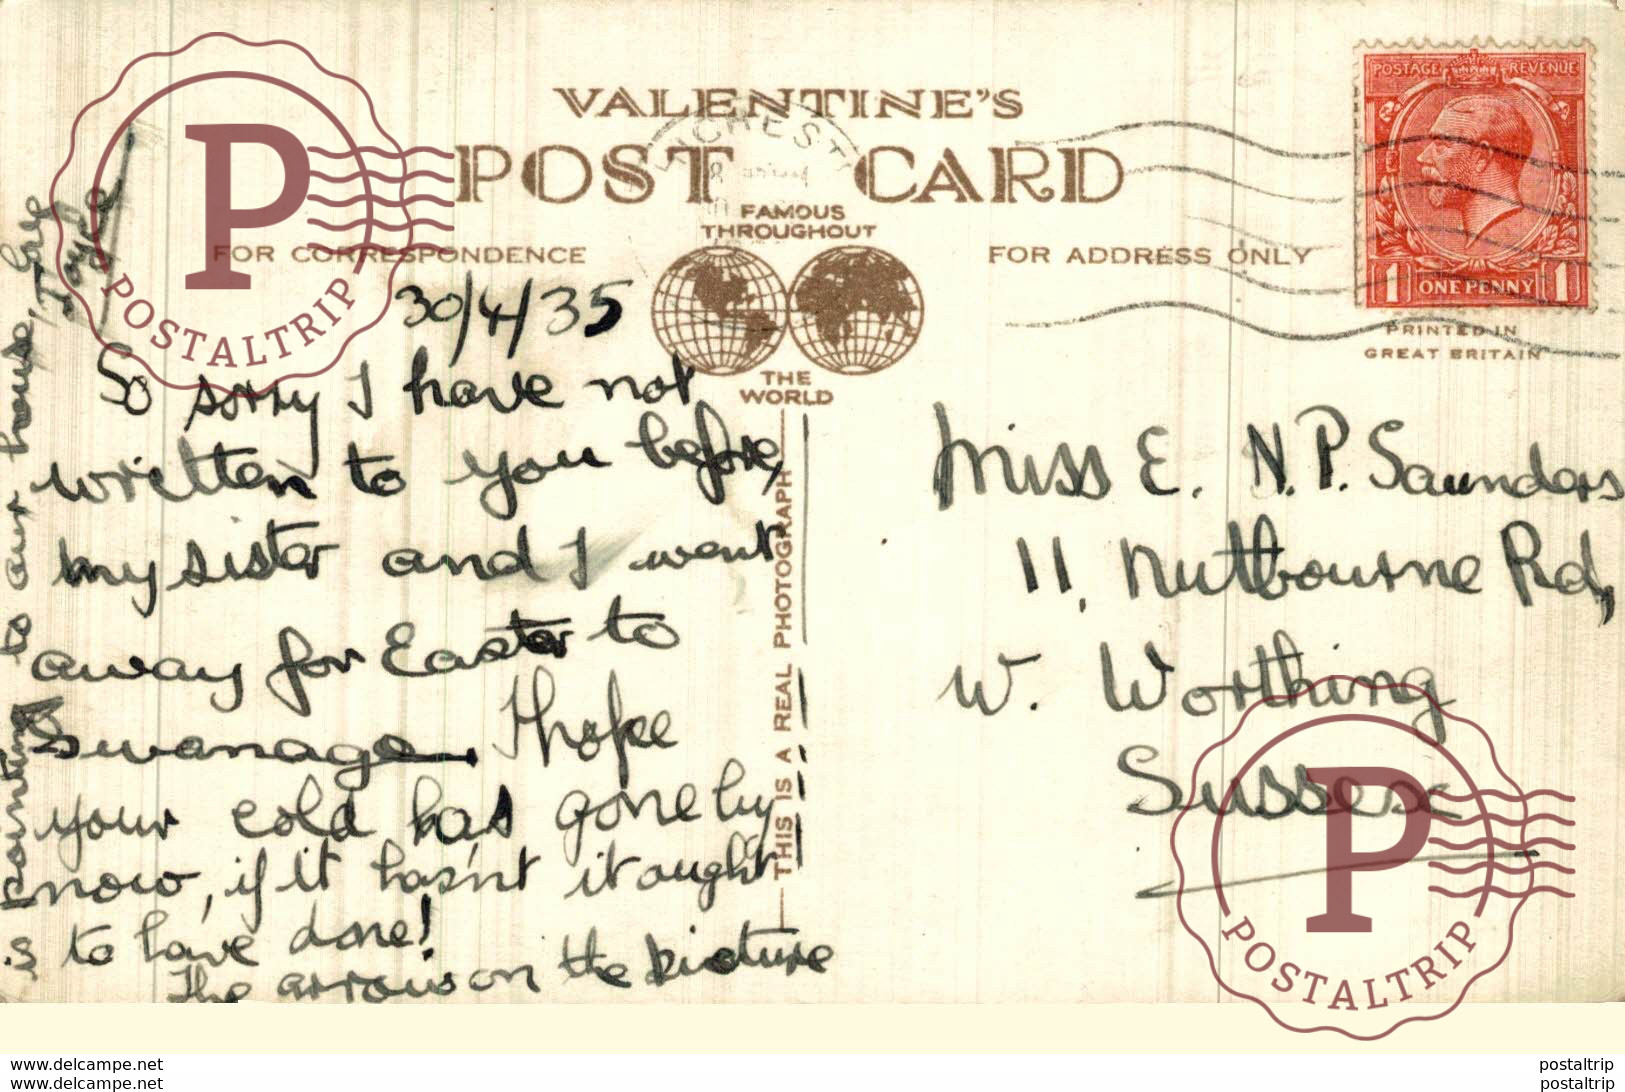 VALENTINE'S
POST CARD
FAMOUS
THROUGHOUT
THE
WORLD
FOR CORRESPONDENCE
FOR ADDRESS ONLY
POSTAGE REVENUE
1 ONE PENNY 1
PRINTED IN
GREAT BRITAIN
30/4/35
So sorry I have not
written to you before,
my sister and I went
away for Easter to
Swanage, I hope
your cold has gone by
now, if it hasn't it ought
to have done!
The arrow on the picture
is pointing to our house,
Joyce
THIS IS A REAL PHOTOGRAPH
Miss E. N.P. Saunders
11, Nutbourne Rd,
W. Worthing
Sussex
P
POSTALTRIP
P
POSTALTRIP
www.delcampe.net
postaltrip
www.delcampe.net
postaltrip